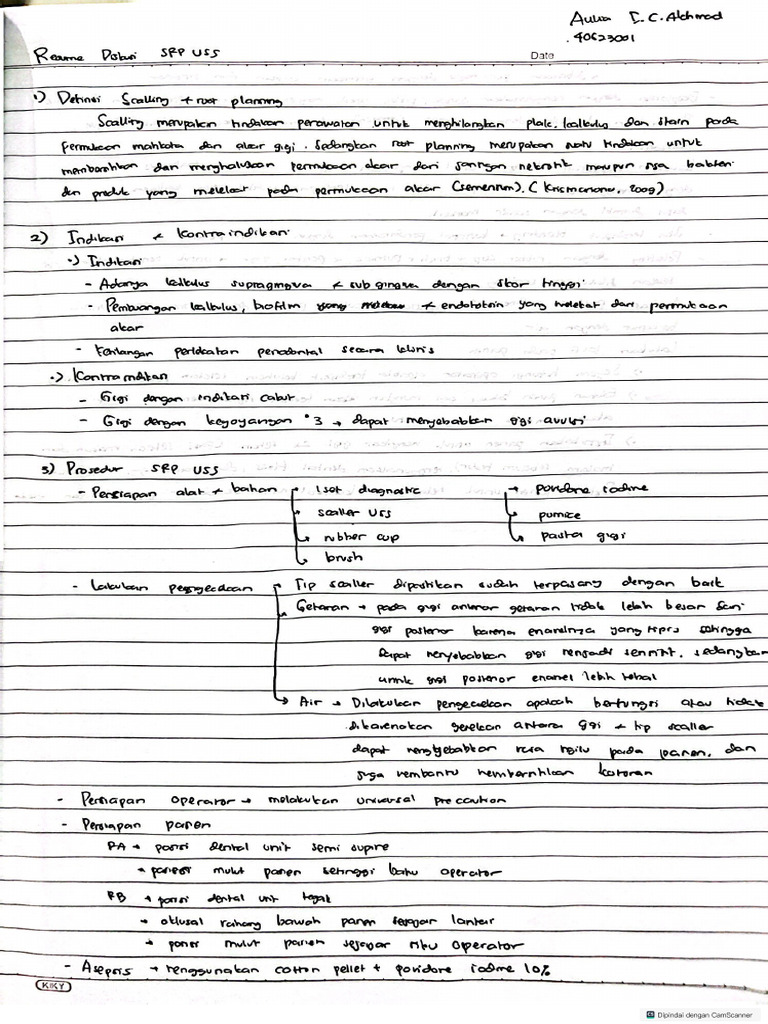 Aulia I. C. Alchmad
40623001
Resume Diskusi SRP USS
Date
1) Definisi Scalling + root planning
Scalling merupakan tindakan perawatan untuk menghilangkan plak, kalkulus dan stain pada
permukaan mahkota dan akar gigi. Sedangkan root planning merupakan suatu tindakan untuk
membersihkan dan menghaluskan permukaan akar dari jaringan nekrotik maupun sisa bakteri
dan produk yang melekat pada permukaan akar (sementum). (Krismariono, 2009)
2) Indikasi & Kontraindikasi
•) Indikasi
- Adanya kalkulus supragingiva & subgingiva dengan skor tinggi
- Pembuangan kalkulus, biofilm & endotoksin yang melekat dari permukaan
akar
- Kehilangan perlekatan periodontal secara klinis
•) Kontraindikasi
- Gigi dengan indikasi cabut
- Gigi dengan kegoyangan °3 → dapat menyebabkan gigi avulsi
3) Prosedur SRP USS
- Persiapan alat + bahan 1 set diagnostic → povidone iodine
scaller USS pumice
rubber cup pasta gigi
brush
- Lakukan pengecekan Tip scaller dipastikan sudah terpasang dengan baik
Getaran → pada gigi anterior getaran tidak lebih besar dari
gigi posterior karena enamelnya yang tipis sehingga
dapat menyebabkan gigi menjadi sensitif, sedangkan
untuk gigi posterior enamel lebih tebal
Air → Dilakukan pengecekan apakah berfungsi atau tidak
dikarenakan gesekan antara gigi & tip scaller
dapat menyebabkan rasa ngilu pada pasien, dan
juga membantu membersihkan kotoran
- Persiapan operator → melakukan universal precaution
- Persiapan pasien
RA → posisi dental unit semi supine
→ posisi mulut pasien setinggi bahu operator
RB → posisi dental unit tegak
→ oklusal rahang bawah pasien sejajar lantai
→ posisi mulut pasien sejajar siku operator
- Asepsis → menggunakan cotton pellet + povidone iodine 10%
KIKY
Dipindai dengan CamScanner